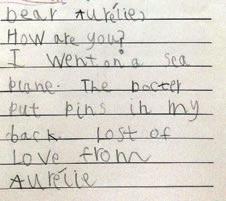 Dear Aurélie,
How are you?
I went on a sea
plane. The docter
put pins in my
back. Lost of
love from
Aurélie